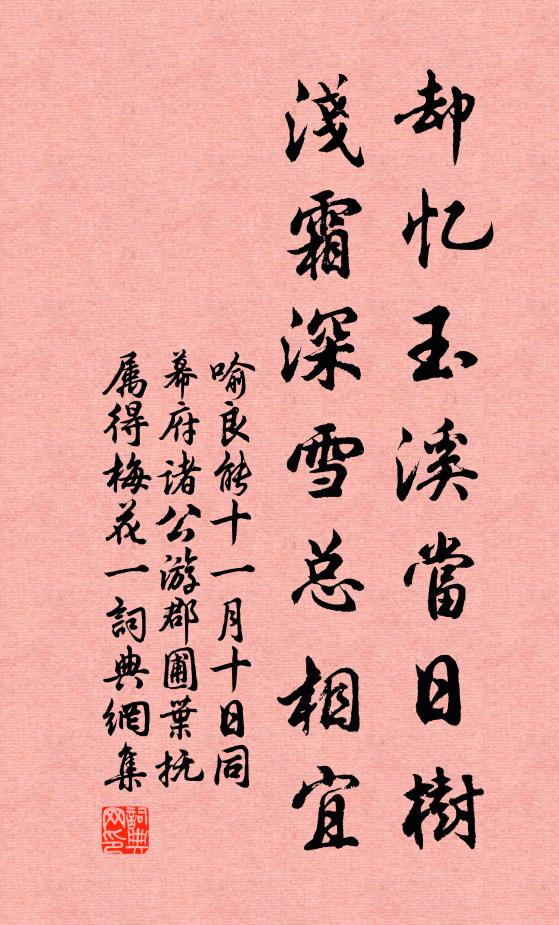 却忆玉溪當日樹
淺霜深雪总相宜
喻良能十一月十日同
幕府诸公游郡圃葉抚
属得梅花一詞典網集
詞典网印